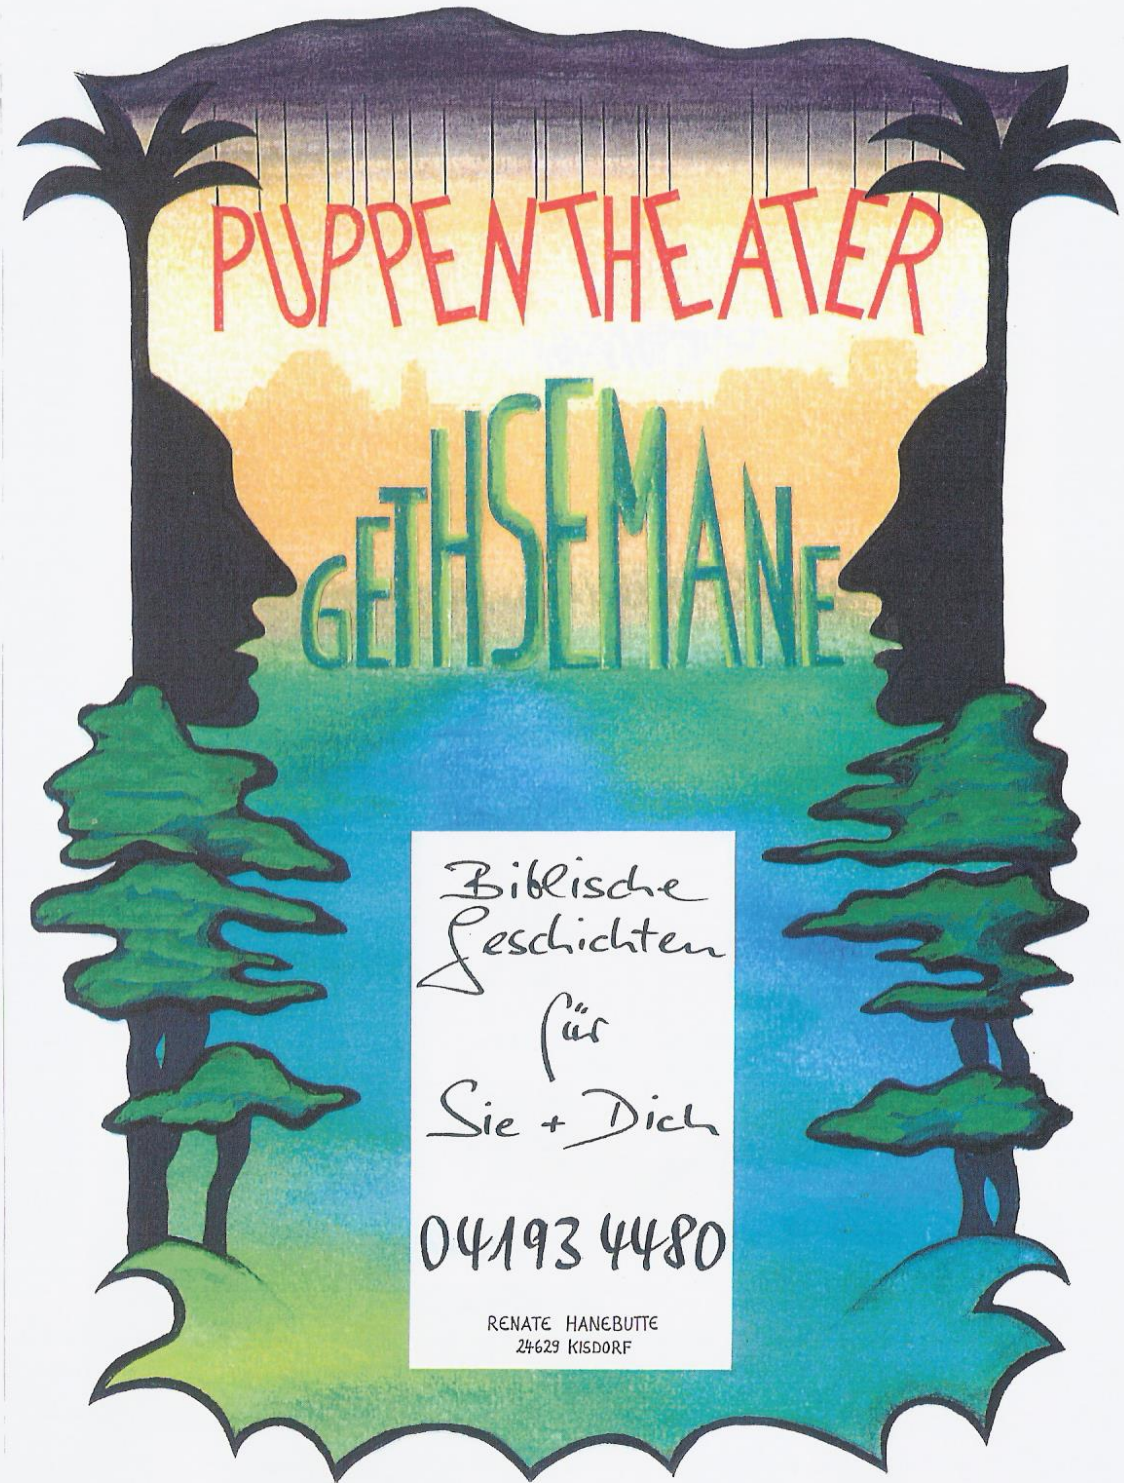 PUPPENTHEATER
GETHSEMANE
Biblische
Geschichten
für
Sie + Dich
04193 4480
RENATE HANEBUTTE
24629 KISDORF